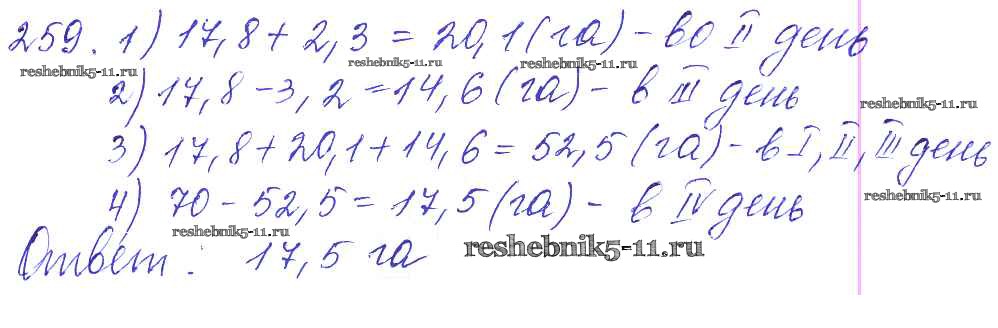 259. 1) 17,8 + 2,3 = 20,1 (га) - во II день
reshebnik5-11.ru reshebnik5-11.ru reshebnik5-11.ru
2) 17,8 - 3,2 = 14,6 (га) - в III день
reshebnik5-11.ru
3) 17,8 + 20,1 + 14,6 = 52,5 (га) - в I, II, III день
reshebnik5-11.ru
4) 70 - 52,5 = 17,5 (га) - в IV день
reshebnik5-11.ru
Ответ: 17,5 га
reshebnik5-11.ru